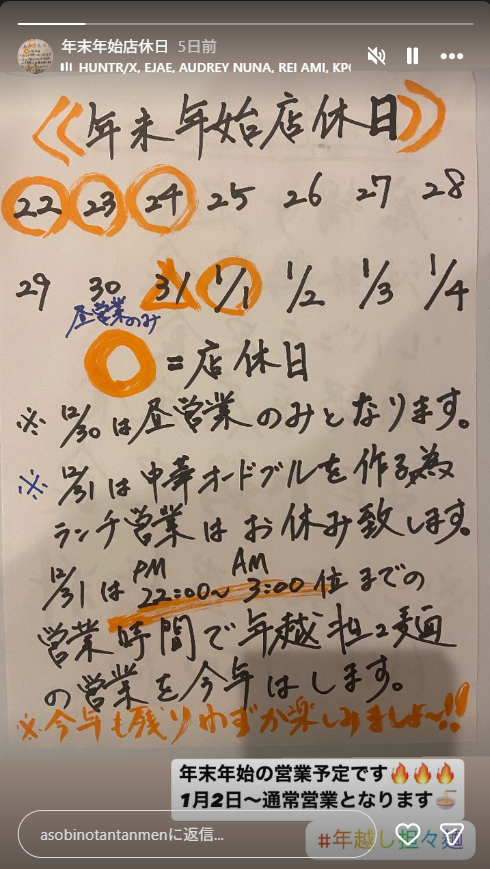 年末年始店休日 5日前
HUNTR/X, EJAE, AUDREY NUNA, REI AMI, KP
《年末年始店休日》
22 23 24 25 26 27 28
29 30 31 1/1 1/2 1/3 1/4
昼営業のみ
=店休日
※12/30は昼営業のみとなります。
※12/31は中華オードブルを作る為
ランチ営業はお休み致します。
12/31はPM22:00~AM3:00位までの
営業時間で年越担々麺
の営業を今年はします。
※今年も残りわずか楽しみましょ~!!
年末年始の営業予定です🔥🔥🔥
1月2日～通常営業となります🍜
asobinotantanmenに返信...
#年越し担々麺